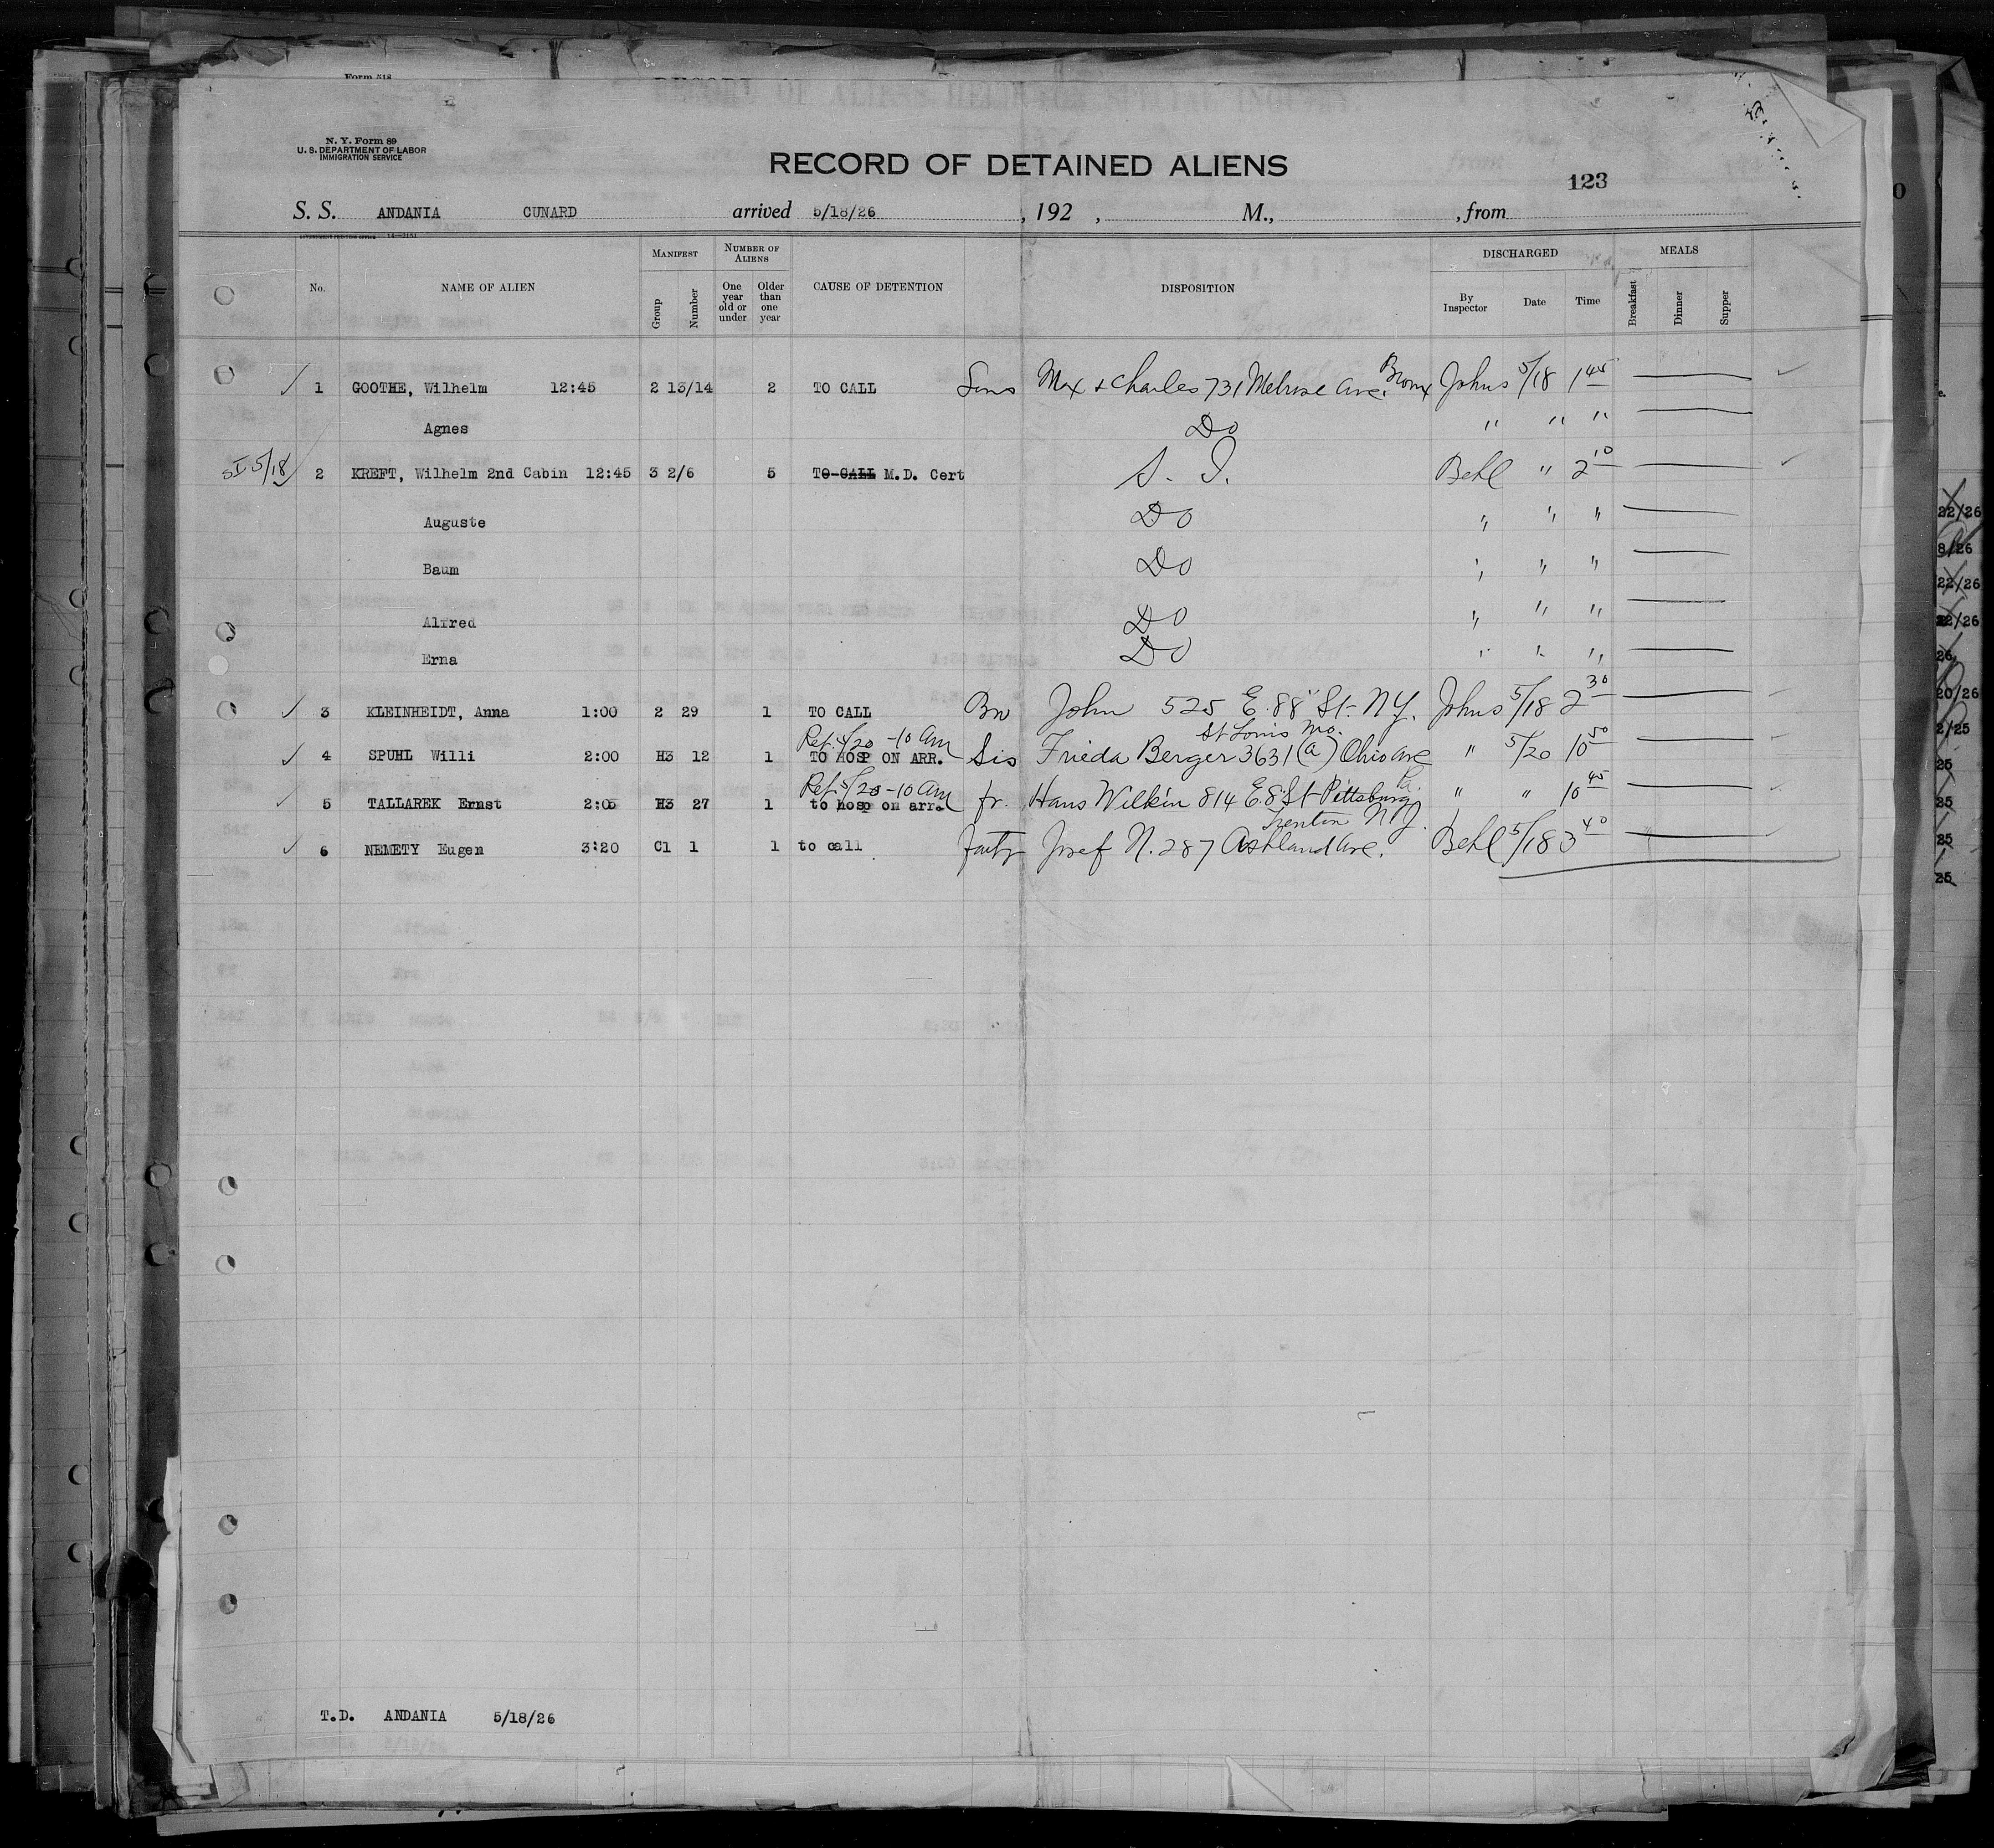 Form 518
N. Y. Form 89
U. S. DEPARTMENT OF LABOR
IMMIGRATION SERVICE
RECORD OF DETAINED ALIENS
123
S. S. ANDANIA CUNARD arrived 5/18/26, 192 , M., , from
No. NAME OF ALIEN MANIFEST Group Number NUMBER OF ALIENS One year old or under Older than one year CAUSE OF DETENTION DISPOSITION DISCHARGED By Inspector Date Time MEALS Breakfast Dinner Supper
1 GOOTHE, Wilhelm 12:45 2 13/14 2 TO CALL Sons Max + Charles 731 Melrose Ave. Bronx Johns 5/18 1 45
Agnes Do " " "
SI 5/18 2 KREFT, Wilhelm 2nd Cabin 12:45 3 2/6 5 TO CALL M.D. Cert S. I. Behl " 2 10
Auguste Do " " "
Baum Do " " "
Alfred Do " " "
Erna Do " " "
3 KLEINHEIDT, Anna 1:00 2 29 1 TO CALL Bro John 525 E. 88" St. N.Y. Johns 5/18 2 30
Ref. 4/20 - 10 am St Louis Mo.
4 SPUHL Willi 2:00 H3 12 1 TO HOSP ON ARR. Sis Frieda Berger 3631 (a) Ohio Ave " 5/20 10 50
Ref. 5/20 - 10 am Pa.
5 TALLAREK Ernst 2:05 H3 27 1 to hosp on arr. fr. Hans Wilkin 814 E. 8" St Pittsburg " " 10 45
Trenton N.J.
6 NEMETY Eugen 3:20 C1 1 1 to call Josef N. 287 Ashland Ave. Behl 5/18 3 40
T.D. ANDANIA 5/18/26
22/26
8/26
22/26
22/26
26
20/26
2/25
25
25
25
25